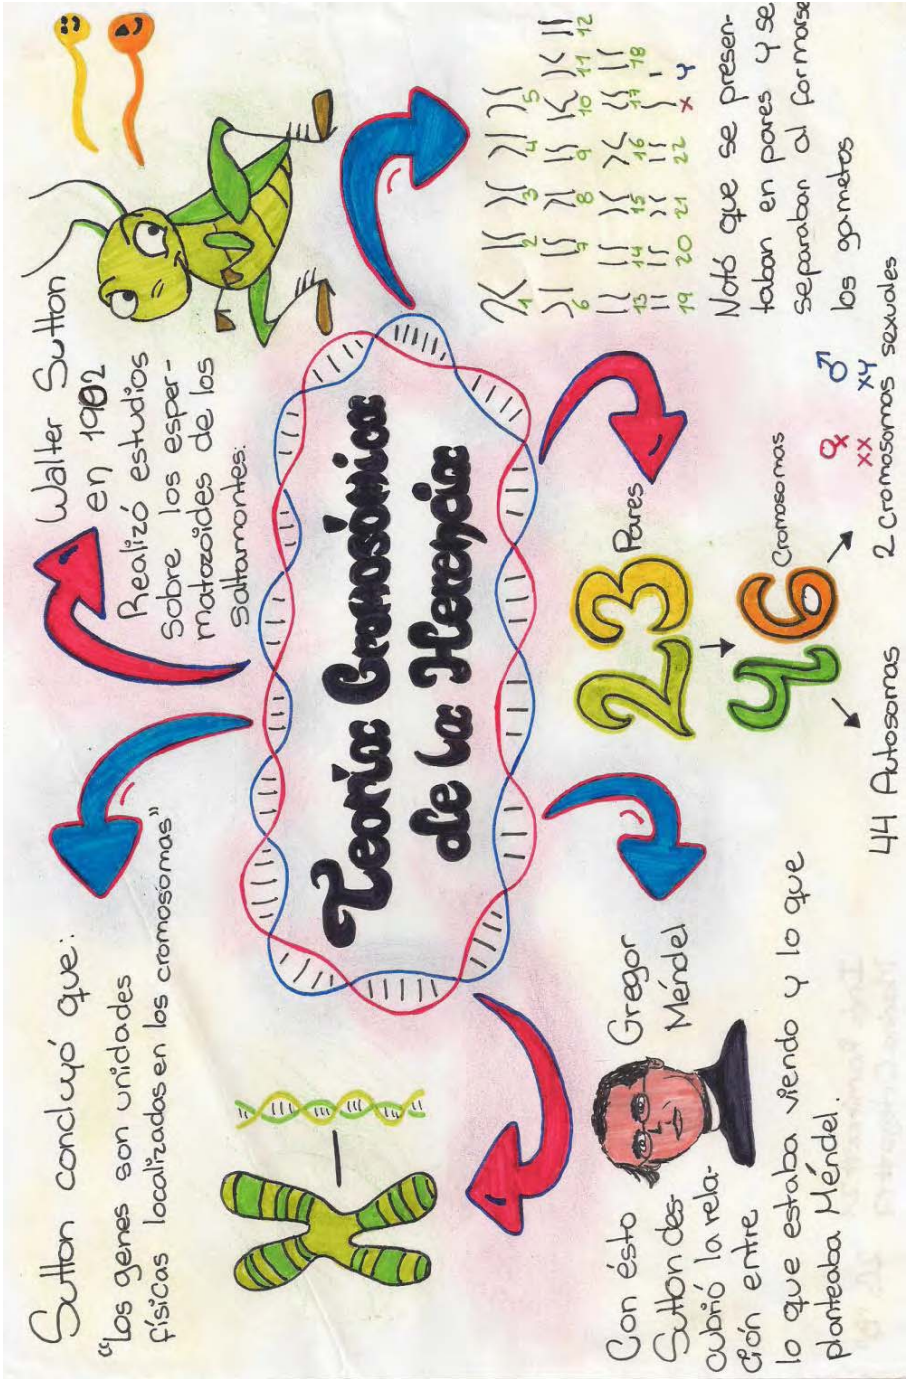 Teoría Cromosómica
de la Herencia
Walter Sutton
en 1902
Realizó estudios
sobre los esper-
matozoides de los
saltamontes.
1 2 3 4 5
6 7 8 9 10 11 12
13 14 15 16 17 18
19 20 21 22 x y
Notó que se presen-
taban en pares y se
separaban al formarse
los gametos
23 Pares
46 Cromosomas
♀ ♂
xx xy
44 Autosomas
2 Cromosomas sexuales
Gregor
Méndel
Con ésto
Sutton des-
cubrió la rela-
ción entre
lo que estaba viendo y lo que
planteaba Méndel.
Sutton concluyó que:
"Los genes son unidades
físicas localizados en los cromosomas"